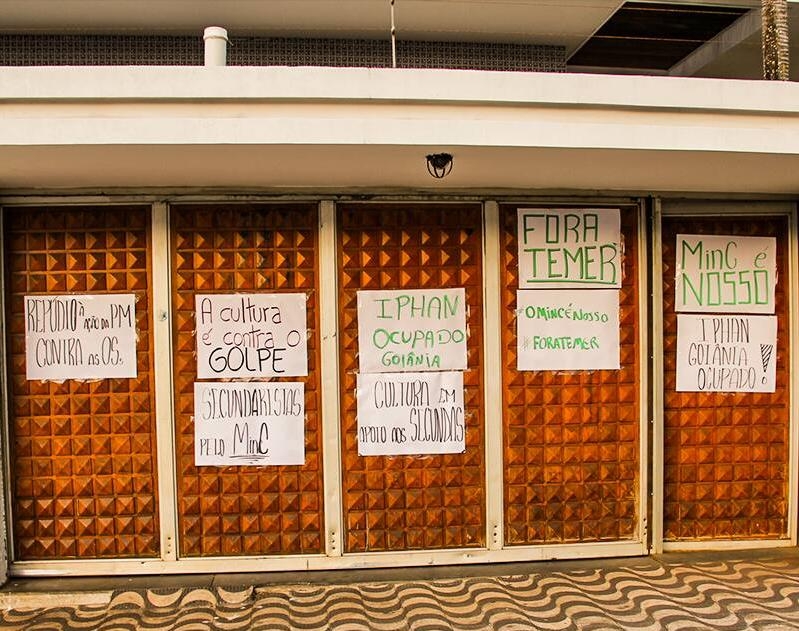 REPÚDIO À
AÇÃO DA PM
CONTRA AS OS.
A cultura
é contra o
GOLPE
SECUNDARISTAS
PELO MinC
IPHAN
OCUPADO
GOIÂNIA
CULTURA EM
APOIO AOS SECUNDAS
FORA
TEMER
#OMINCÉNOSSO
#FORATEMER
MinC é
NOSSO
IPHAN
GOIÂNIA
OCUPADO!